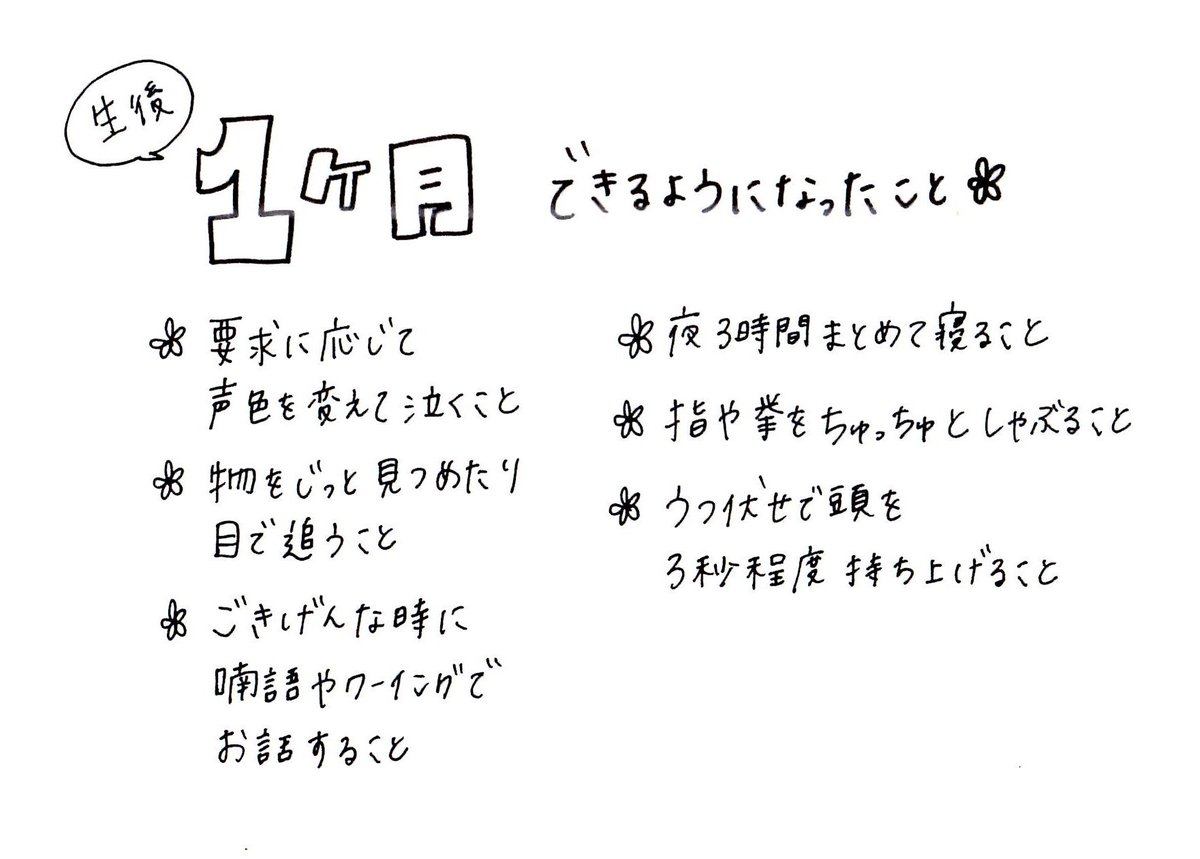 生後
1ヶ月 できるようになったこと
要求に応じて
声色を変えて泣くこと
物をじっと見つめたり
目で追うこと
ごきげんな時に
喃語やクーイングで
お話すること
夜3時間まとめて寝ること
指や拳をちゅっちゅとしゃぶること
うつ伏せで頭を
3秒程度持ち上げること